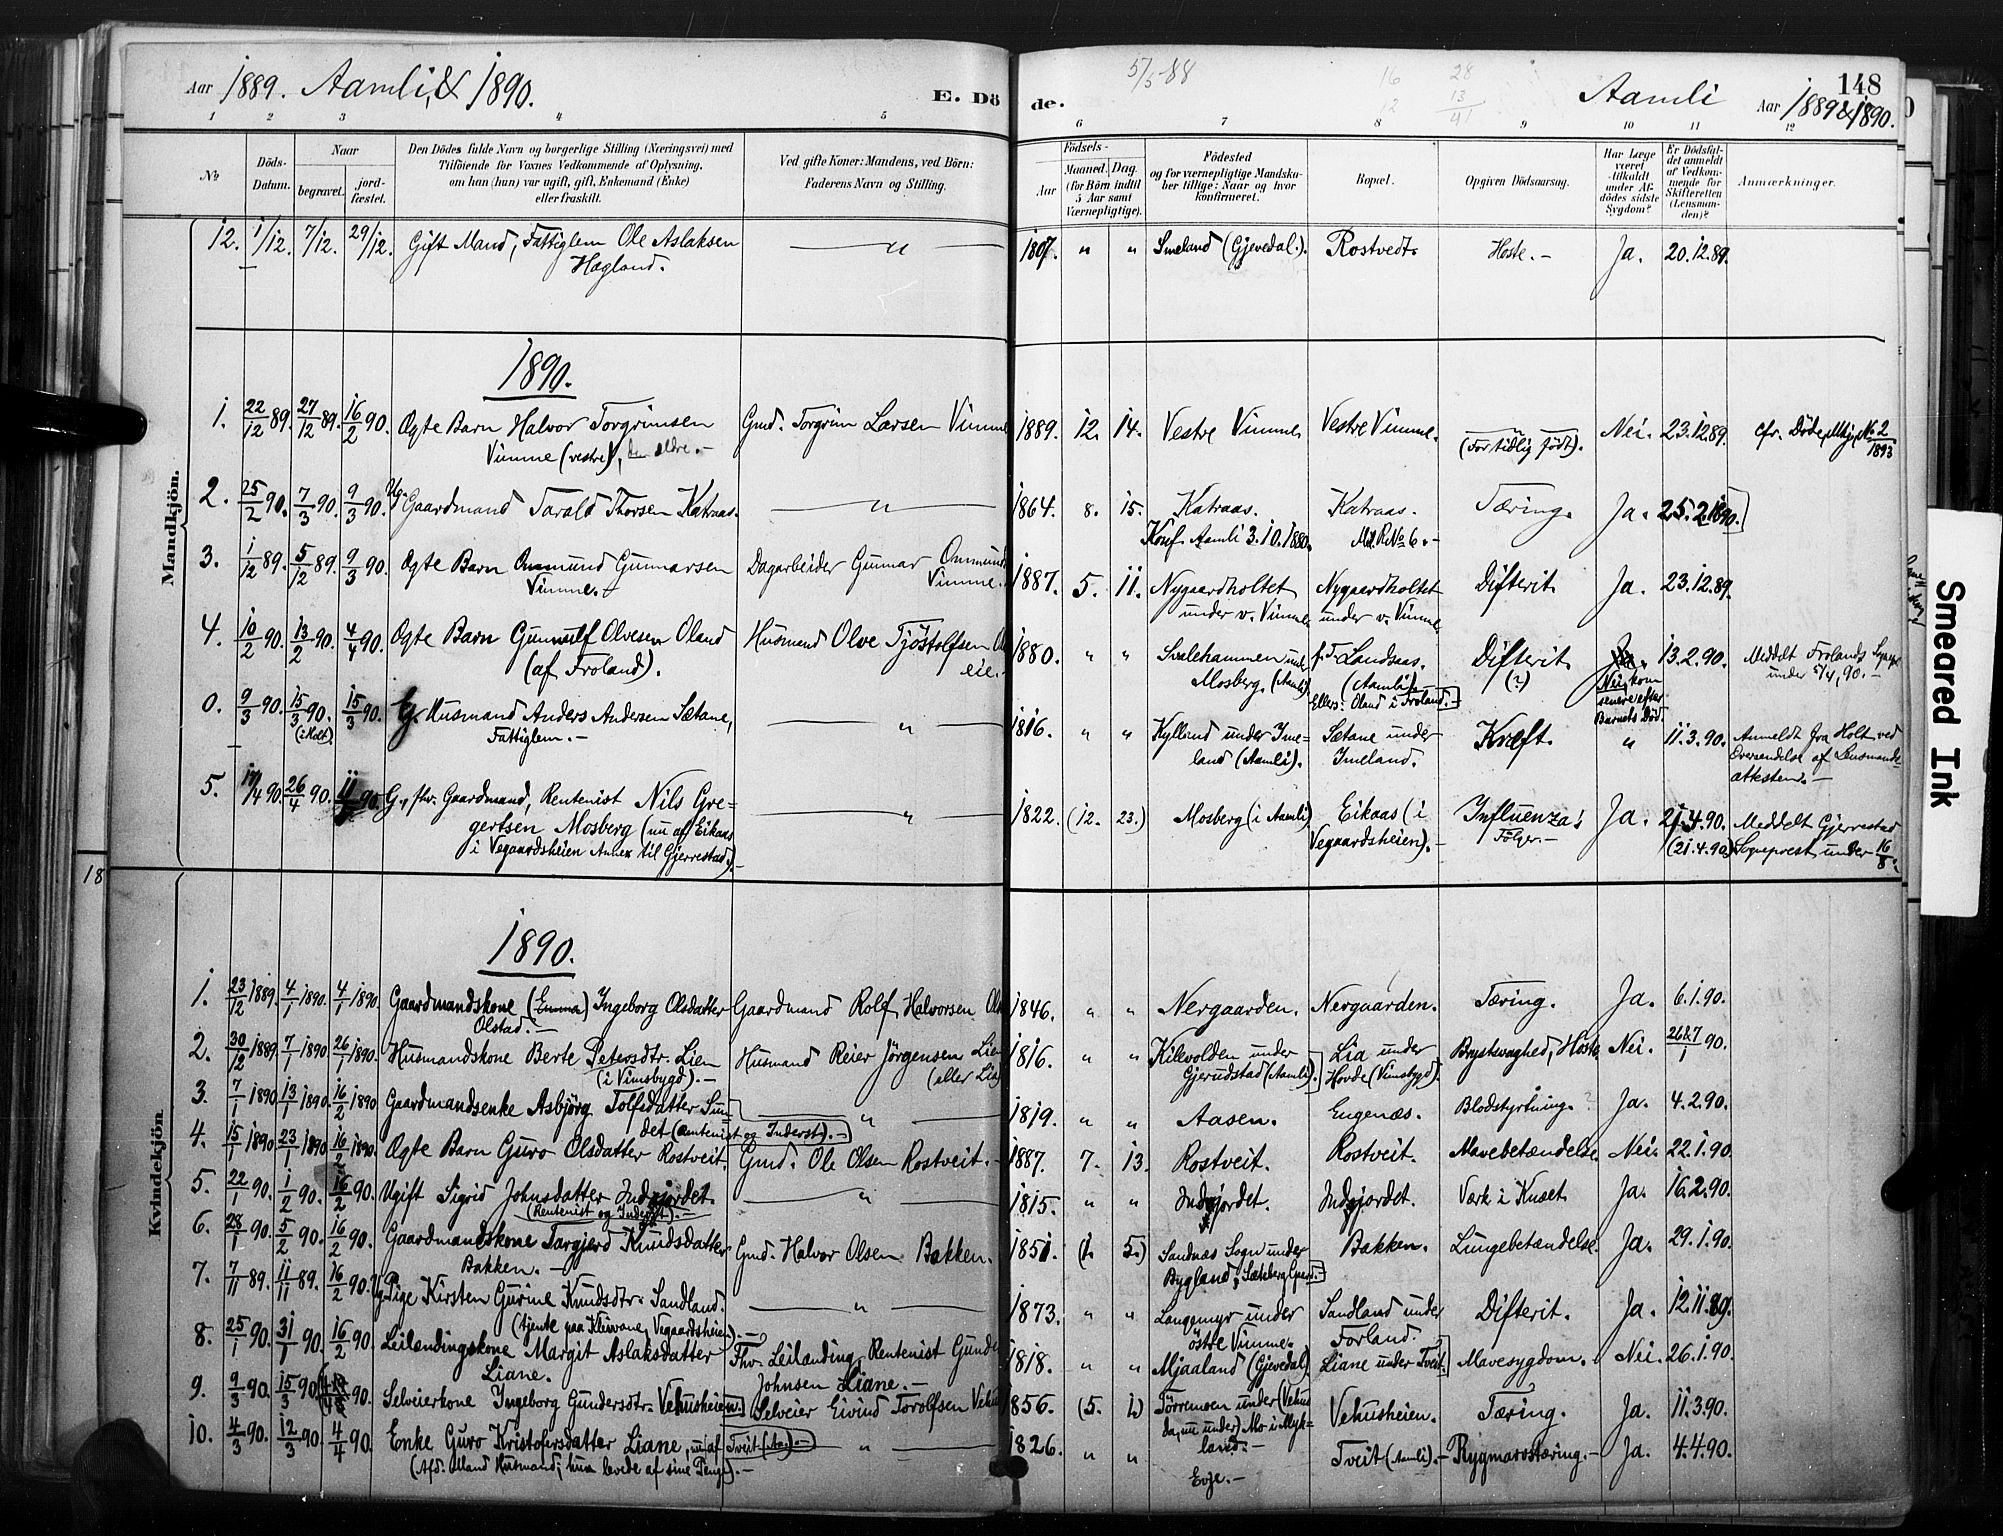 Aar 1889. Aamli, & 1890. E. Dö
de. 5/5 88 16 28 Aamli Aar 1889 & 1890. 148
12 13
41
1 2 3 4 5 6 7 8 9 10 11 12
No
Döds-Datum.
Naar
begravet.
jord-fæstet.
Den Dödes fulde Navn og borgerlige Stilling (Næringsvei) med
Tilföiende for Voxnes Vedkommende af Oplysning,
om han (hun) var ugift, gift, Enkemand (Enke)
eller fraskilt.
Ved gifte Koner: Mandens, ved Börn:
Faderens Navn og Stilling.
Födsels-
Aar
Maaned. Dag.
(for Börn indtil
5 Aar samt
Værnepligtige).
Födested
og for værnepligtige Mandsku-
ber tillige: Naar og hvor
konfirmeret.
Bopæl.
Opgiven Dödsaarsag.
Har Læge
været
tilkaldt
under Af-
dödes sidste
Sygdom?
Er Dödsfal-
det anmeldt
af Vedkom-
mende for
Skifteretten
(Lensman-
den)?
Anmærkninger.
Mandkjön.
12. 1/12. 7/12. 29/12. Gift Mand, Fattiglem Ole Aslaksen — " — 1807. " " Smeland (Gjevedal). Rostvedt. Hoste. — Ja. 20.12.89.
Hægland.
1890.
1. 22/12 89. 27/12 89. 16/2 90. Ægte Barn Halvor Torgrimsen Gmd. Torgrim Larsen Vimme 1889. 12. 14. Vestre Vimme. Vestre Vimme. " Nei. 23.12.89. cfr. Döde, Mkj., No. 2/1893
Vimme (vestre), den ældre. — (For tidlig födt).
2. 25/2 90. 7/3 90. 9/3 90. Ug. Gaardmand Tarald Thorsen Katraas. — " — 1864. 8. 15. Katraas. Katraas. Tæring. Ja. 25.2.1890.
Konf. Aamli 3.10.1880. Mil. R. No 6. —
3. 1/12 89. 5/12 89. 9/3 90. Ægte Barn Ommund Gunnarsen Dagarbeider Gunnar Ommunds 1887. 5. 11. Nygaardholtet Nygaardholtet Difterit Ja. 23.12.89.
Vimme. — Vimme. under v. Vimme under v. Vimme
4. 10/2 90. 13/2 90. 4/4 90. Ægte Barn Gunnulf Olvesen Oland Husmand Olve Tjöstolfsen 1880. " " Smalehammen under f. T. Landsaas. Difterit 13.2.90. Meddelt Frolands Sognepr.
(af Froland). eie. Mosberg. (Aamli) (Aamli) (?) Nei, kom under 5/4, 90. —
Ellers: Oland i Froland. — senere efter
Barnets Död.
0. 9/3 90. 15/3 90. 15/3 90. G. Husmand Anders Andersen Sætane, — " — 1816. " " Kyllend under Ime- Sætane under Kræft. " 11.3.90. Anmeldt fra Holt ved
(i Holt) Fattiglem. — land (Aamli). Imeland. Oversendelse af Lensmands-
attesten. —
5. 17/4 90. 26/4 90. 90. G., fhv. Gaardmand, Rentenist Nils Gre- — " — 1822. (12. 23.) Mosberg (i Aamli) Eikaas (i Influenza's Ja. 21.4.90. Meddelt Gjerrestad
gertsen Mosberg (nu af Eikaas Vegaardsheien). — Fölger. — (21.4.90) Sogneprest under 16/8.
i Vegaardsheien Annex til Gjerrestad). —
18
Kvindekjön
1890.
1. 23/12 1889. 4/1 1890. 4/1 1890. Gaardmandskone (Emma) Ingeborg Olsdatter Gaardmand Rolf Halvorsen 1846. " " Nergaarden. Nergaarden. Tæring. Ja. 6.1.90.
Olstad. —
2. 30/12 1889. 7/1 1890. 26/1 1890. Husmandskone Berte Petersdtr. Lien Husmand Reier Jörgensen Lien 1816. " " Kilevolden under Lia under Brystsvaghed, Hoste. Nei. 26&7/1 90.
(i Vimsbygd). — (eller Lia) Gjerudstad (Aamli). Hovde (Vimsbygd).
3. 7/1 1890. 13/1 1890. 16/2 1890. Gaardmandsenke Asbjörg Tolfsdatter Sun- — " — 1819. " " Aasen. Engenæs. Blodstyrtning? Ja. 4.2.90.
det (Rentenist og Inderst). —
4. 15/1 1890. 23/1 1890. 16/2 1890. Ægte Barn Guro Olsdatter Rostveit. Gmd. Ole Olsen Rostveit. — 1887. 7. 13. Rostveit. Rostveit. Mavebetændelse. Nei. 22.1.90.
5. 22/1 90. 1/2 90. 16/2 90. Ugift Sigrid Johnsdatter Indgjordet — " — 1815. " " Indgjordet. Indgjordet. Værk i Knæet Ja. 16.2.90.
(Rentenist og Inderst). —
6. 28/1 90. 5/2 90. 16/2 90. Gaardmandskone Targjerd Knudsdatter Gmd. Halvor Olsen Bakken. 1851. (1. 5.) Sandnæs Sogn under Bakken. Lungebetændelse. Ja. 29.1.90.
Bakken. — Bygland, Sæteberg Gaard. —
7. 7/11 89. 11/11 89. 16/2 90. Ug. Pige Kirsten Gurine Knudsdtr. Sandland. — " — 1873. " " Langemyr under Sandland under Difterit. Ja. 12.11.89.
(tjente paa Kleivane, Vegaardsheien). — östre Vimme. Forland.
8. 25/1 90. 31/1 90. 16/2 90. Leilændingskone Margit Aslaksdatter Fhv. Leilænding, Rentenist Gunder 1818. " " Mjaaland (Gjevedal) Liane under Tveit. Mavesygdom. Nei. 26.1.90.
Liane. Johnsen Liane. —
9. 9/3 90. 15/3 90. 90. Selveierkone Ingeborg Gundersdtr. Vehusheien. Selveier Eivind Torolfsen Vehus 1856. (5. 1.) Törremoen under (Vehus Vehusheien. Tæring. Ja. 11.3.90.
da, nu under) Mo i Myk-
land. —
10. 4/3 90. 12/3 90. 4/4 90. Enke Guro Kristofersdatter Liane, nu af Tveit (Aa). — " — 1826. " " Evje. — Tveit (Aamli). — Rygmarvstæring. — Ja. 4.4.90.
(Afd. Mand Husmand; hun levede af sine Penge). —
Smeared Ink